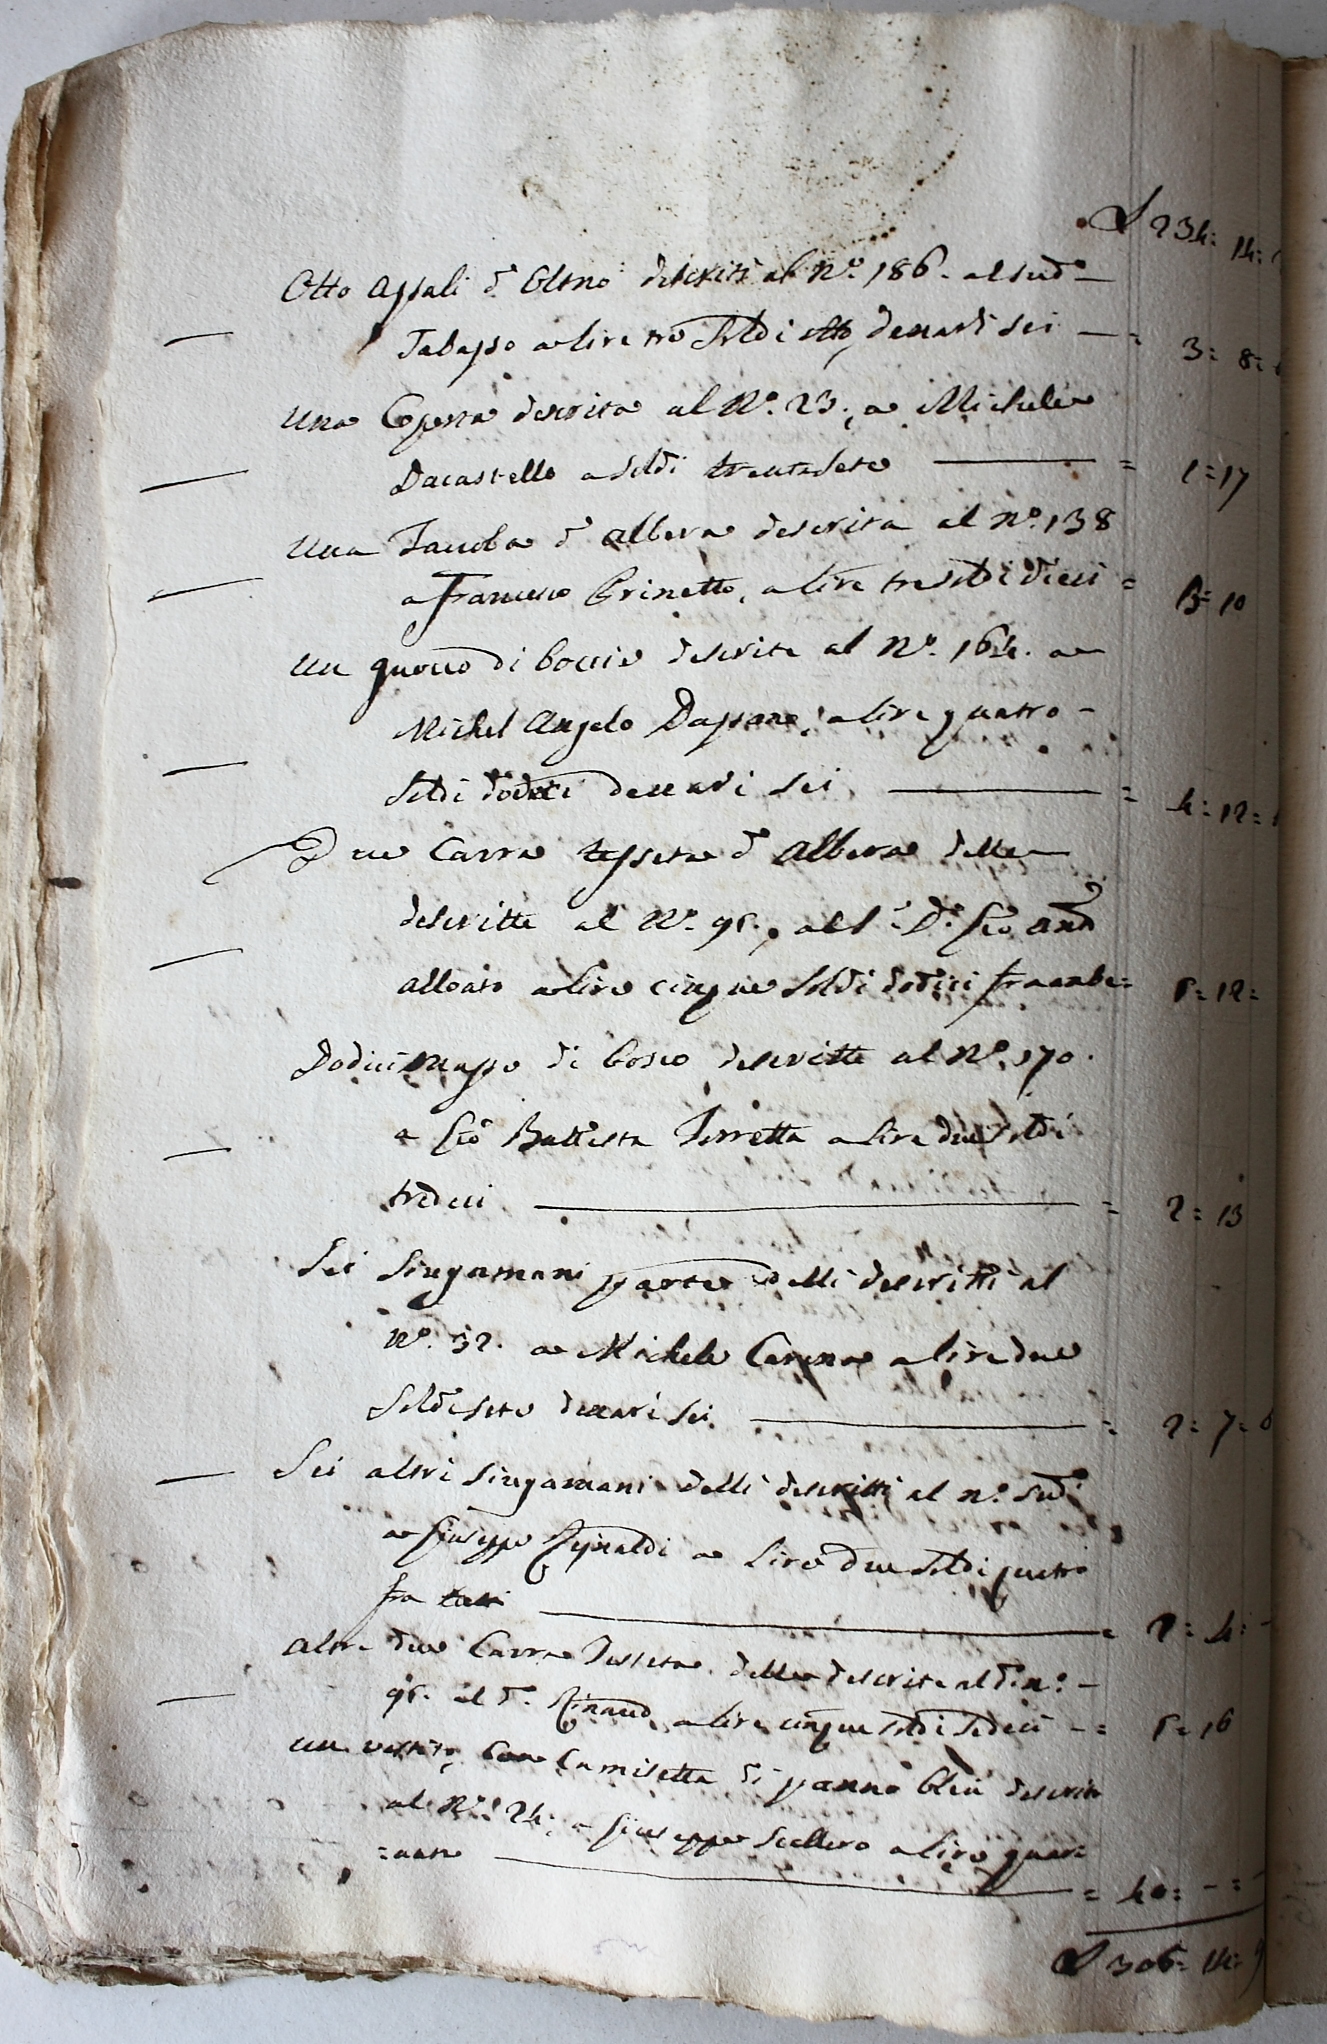 L 234: 14:
Otto assali d'olmo descritti al N.o 186. al sud.o
Tabasso a lire tre soldi otto, denari sei — = 3: 8:
Una Coperta descritta al N.o 23., a Michele
Dacastello a soldi trentasete — = 1=17
Una Tavola d'albera descrita al n.o 138
a Francesco Brinetto, a lire tre soldi dieci = 3= 10
Un giuoco di boccie descrite al N.o 164. a
Michel Angelo Dassano, a lire quatro -
soldi dodeci denari sei — = 4: 12=
Due Carra tessera d'albera delle
descritte al N.o 95., al s.r D.n Gio And
alloato a lire cinque soldi dodici fra ambe= 5= 12=
Dodici masse di bosco descritte al N.o 170.
a Gio Battista Ferretta a lire due soldi
tredeci — = 2= 13
Sei siugamani parte delli descritti al
N.o 32. a Michele Carena a lire due
soldi sete denari sei. — = 2= 7= 6
Sei altri siugamani delli descritti al n.o sud.o
a Giuseppe Rinaldi a lire due soldi quatro
fra tutti — = 2= 4: -
Altre due Carra Tessera delle descrite al d.o n.o -
95. al d.o Rinaud, a lire cinque soldi sedeci - = 5= 16
Un vestito, con Camisetta di panno bleu descrito
al N.o 24., a Giuseppe Scellero a lire quar=
=anta — = 40= - = -
L 306= 14= 9